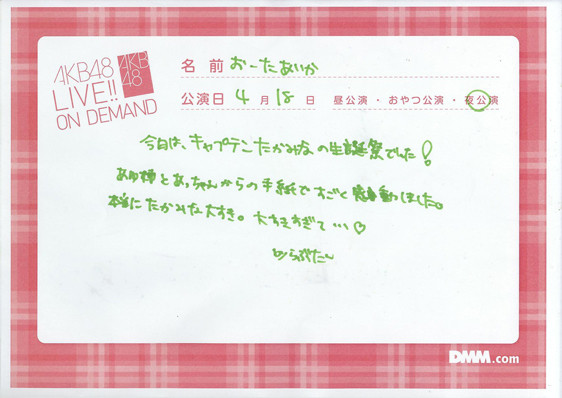 AKB48
LIVE!!
ON DEMAND
AKB
48
名前 おーたあいか
公演日 4月18日 昼公演・おやつ公演・夜公演
今日は、キャプテンたかみなの生誕祭でした!
お母様とあっちゃんからの手紙ですごく感動しました。
本当にたかみな大すき。大すきすぎて…♡
らぶたん
DMM.com